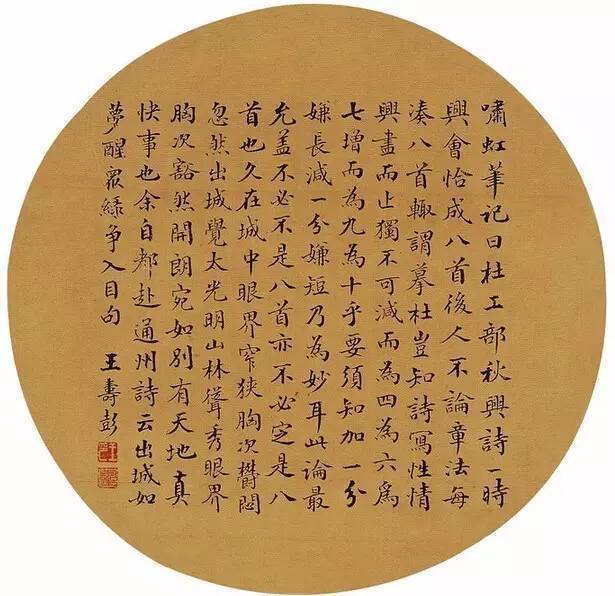 嘯虹筆記曰杜工部秋興詩一時
興會恰成八首後人不論章法每
湊八首輙謂摹杜豈知詩寫性情
興盡而止獨不可減而為四為六為
七增而為九為十乎要須知加一分
嫌長減一分嫌短乃為妙耳此論最
允盖不必不是八首亦不必定是八
首也久在城中眼界窄狹胸次鬱悶
忽然出城覺太光明山林聳秀眼界
胸次豁然開朗宛如別有天地真
快事也余自都赴通州詩云出城如
夢醒眾綠爭入目句
王壽彭